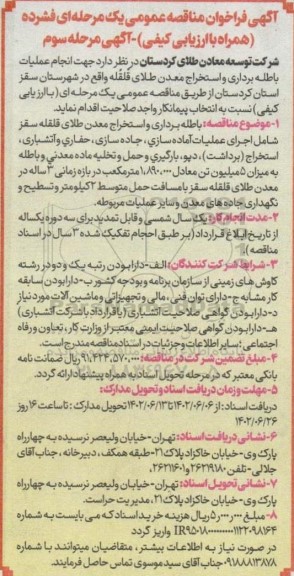 آگهی فراخوان مناقصه عمومی یک مرحله‌ای فشرده
(همراه با ارزیابی کیفی) - آگهی مرحله سوم
شرکت توسعه معادن طلای کردستان در نظر دارد جهت انجام عملیات
باطله برداری و استخراج معدن طلای قلقله واقع در شهرستان سقز
استان کردستان از طریق مناقصه عمومی یک مرحله‌ای (با ارزیابی
کیفی) نسبت به انتخاب پیمانکار واجد صلاحیت اقدام نماید.
۱- موضوع مناقصه: باطله برداری و استخراج معدن طلای قلقله سقز
شامل اجرای عملیات آماده سازی، جاده سازی، حفاری و آتشباری،
استخراج (برداشت)، دپو، بارگیری و حمل و تخلیه ماده معدنی و باطله
به میزان ۵ میلیون تن معادل ۱،۸۹۰،۰۰۰ مترمکعب در بازه زمانی ۳ ساله در
معدن طلای قلقله سقز با مسافت حمل متوسط ۲ کیلومتر و تسطیح و
نگهداری جاده های معدن و سایر عملیات مربوطه.
۲- مدت انجام کار: یک سال شمسی و قابل تمدید برای سه دوره یکساله
از تاریخ ابلاغ قرارداد (بر طبق احجام تفکیک شده ۳ سال در اسناد
مناقصه)
۳- شرایط شرکت کنندگان: الف- دارا بودن رتبه یک و دو در رشته
کاوش های زمینی از سازمان برنامه و بودجه کشور ب- دارا بودن سابقه
کار مشابه ج- دارای توان فنی، مالی و تجهیزاتی و ماشین آلات مورد نیاز
د- دارا بودن گواهی صلاحیت انباری (یا قرارداد با شرکت آتشباری)
هـ- دارا بودن گواهی صلاحیت ایمنی معتبر از وزارت کار، تعاون و رفاه
اجتماعی؛ سایر اطلاعات و جزئیات در اسناد مناقصه مندرج است.
۴- مبلغ تضمین شرکت در مناقصه: ۹۱،۴۲۴،۵۷۰،۰۰۰ ریال ضمانت نامه
بانکی معتبر که در مرحله تحویل اسناد به همراه پیشنهاد ارائه گردد.
۵- مهلت و زمان دریافت اسناد و تحویل مدارک:
دریافت اسناد: از ۱۴۰۲/۰۶/۰۶ تا ۱۴۰۲/۰۶/۱۳ تحویل مدارک: تا ساعت ۱۶ روز
۱۴۰۲/۰۶/۲۶
۶- نشانی دریافت اسناد: تهران- خیابان ولیعصر نرسیده به چهارراه
پارک وی- خیابان خاکزاد پلاک ۲۱- طبقه همکف، دبیرخانه، جناب آقای
جلالی- تلفن ۲۶۲۱۹۱۸۰ و ۲۶۲۱۱۶۰۱.
۷- نشانی تحویل اسناد: تهران- خیابان ولیعصر نرسیده به چهارراه
پارک وی- خیابان خاکزاد پلاک ۲۱، مدیریت حراست.
۸- مبلغ ۵،۰۰۰،۰۰۰ ریال هزینه خرید اسناد که می بایست به شماره
واریز گردد
در صورت نیاز به اطلاعات بیشتر، متقاضیان میتوانند با شماره
۰۹۱۸۸۸۱۳۸۷۸ جناب آقای سید موسوی تماس حاصل فرمایند.